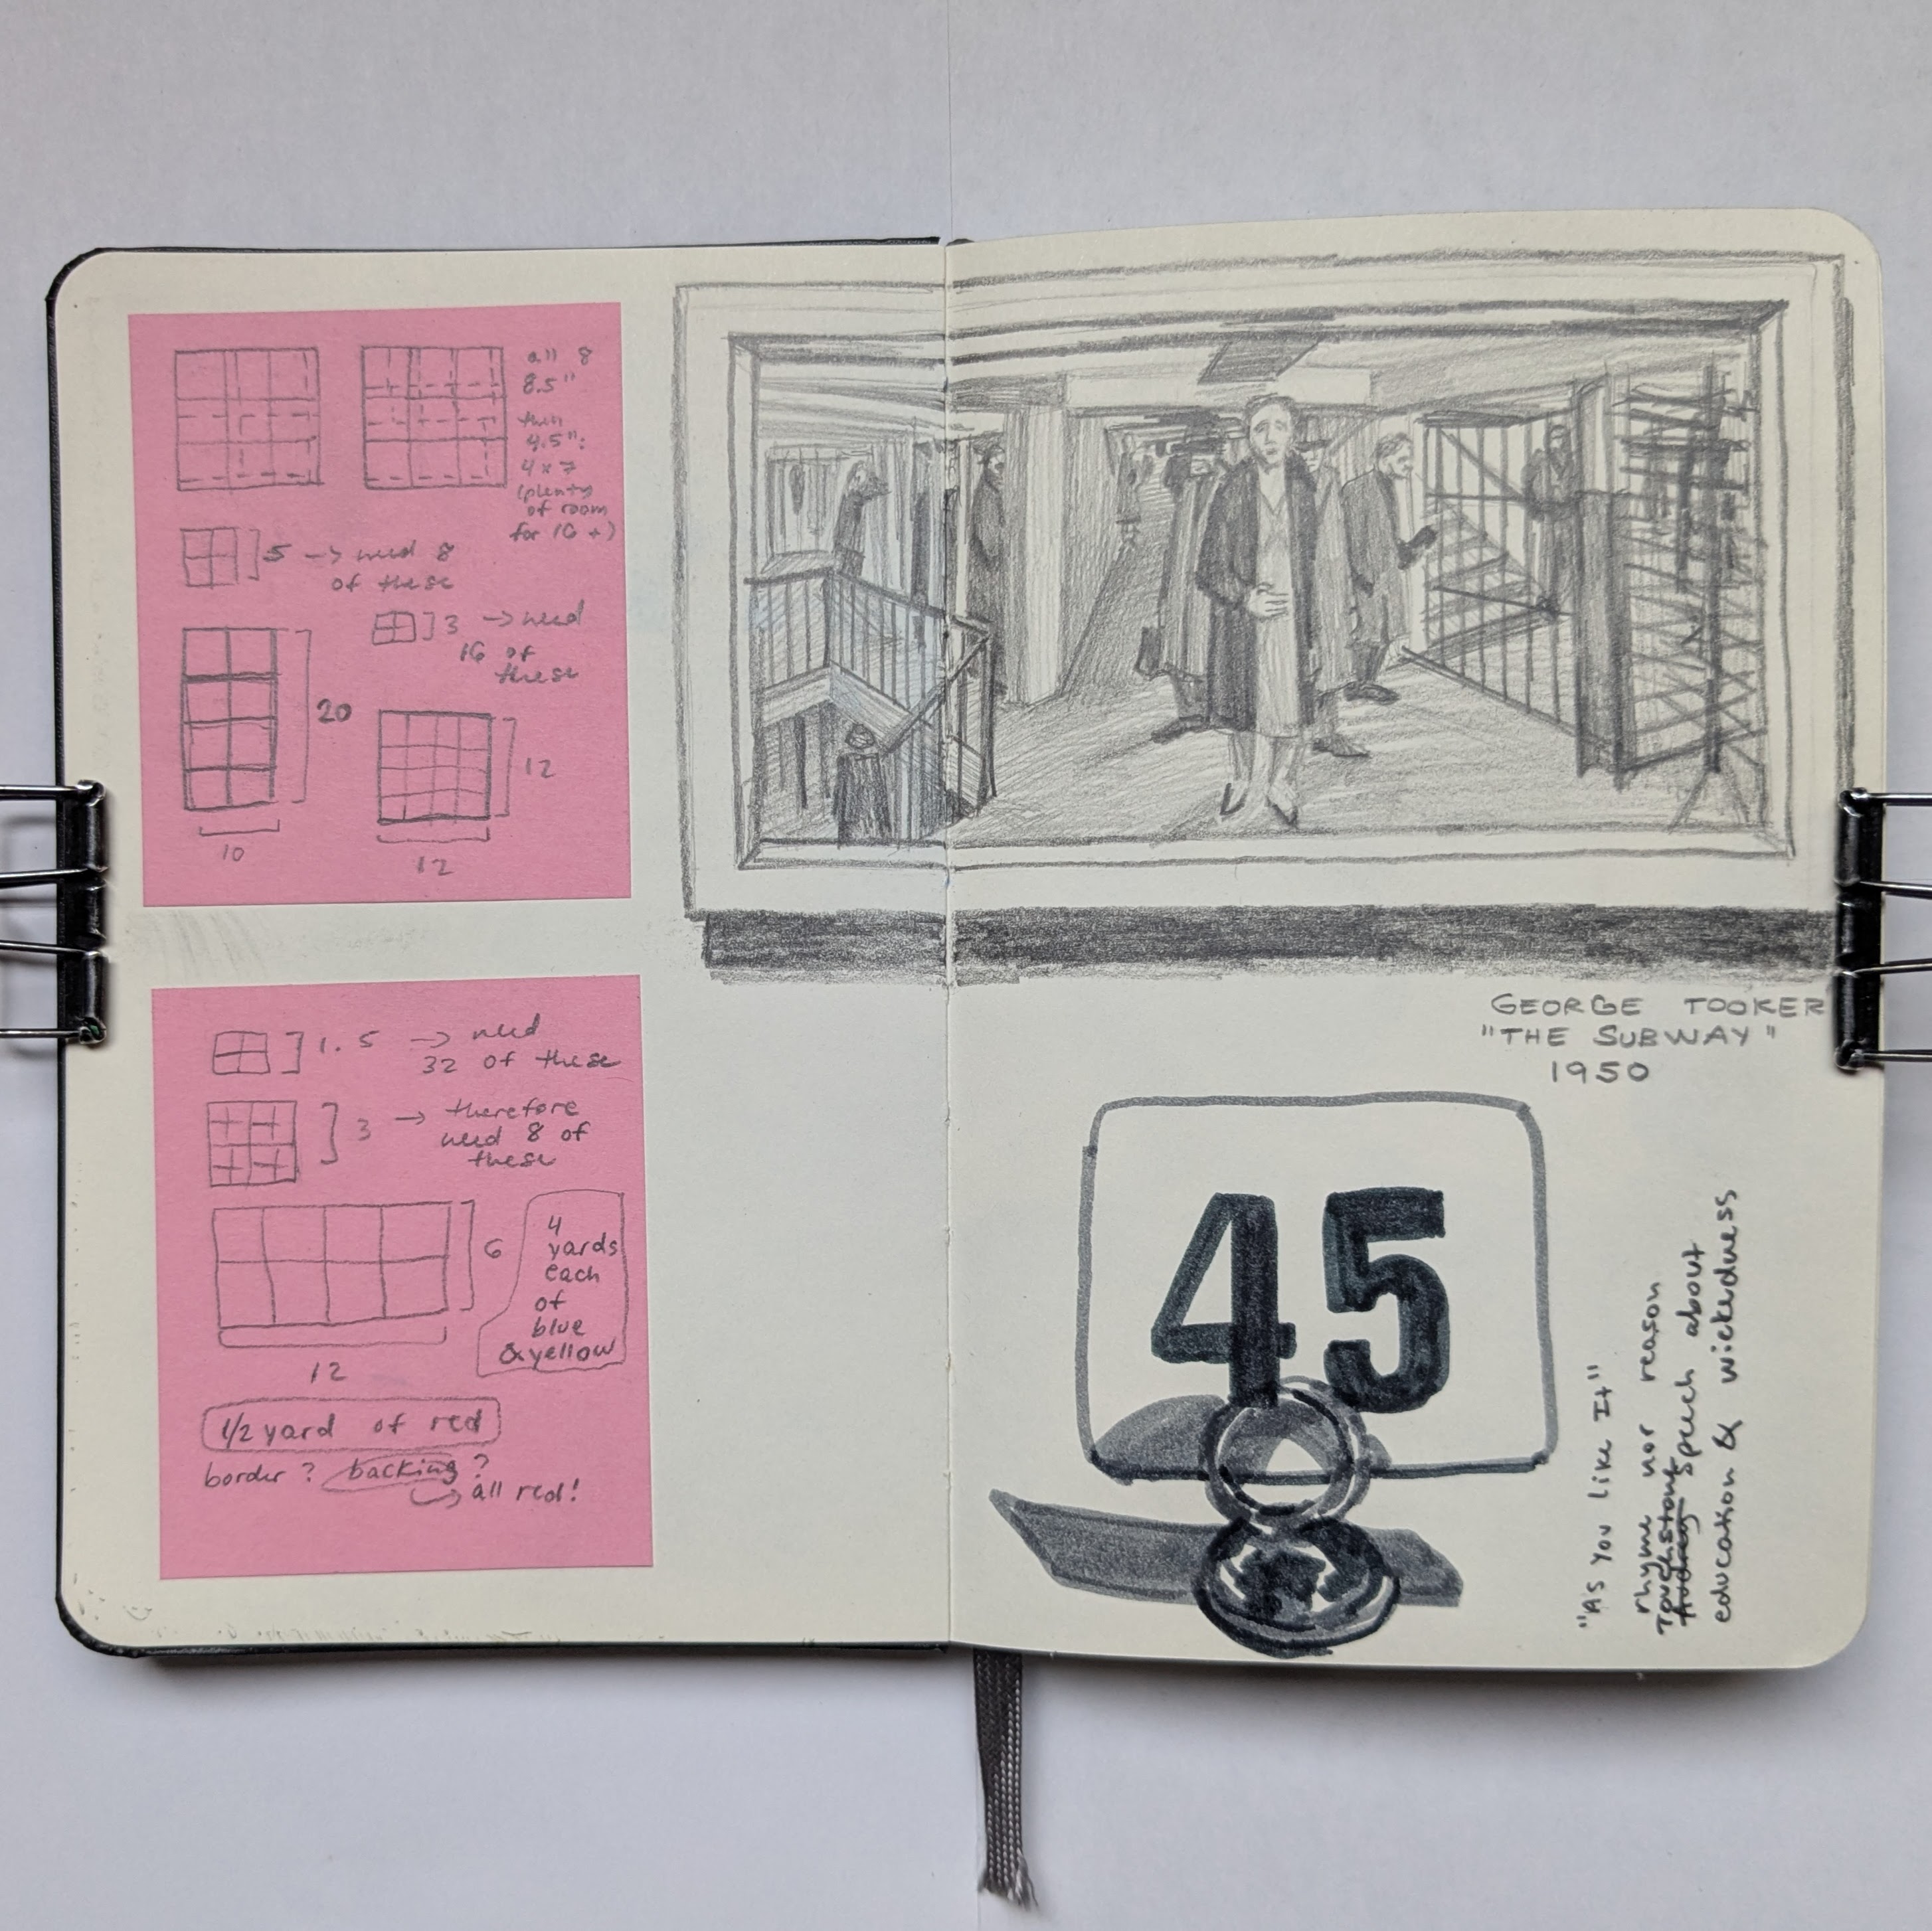 all 8
8.5"
then
4.5":
4 x 7
(plenty
of room
for 16 +)
5 → need 8
of these
3 → need
16 of
these
20
10
12
12
1.5 → need
32 of these
3 → therefore
need 8 of
these
6
12
4
yards
each
of
blue
& yellow
1/2 yard of red
border? backing?
→ all red!
GEORGE TOOKER
"THE SUBWAY"
1950
45
"As You Like It"
rhyme nor reason
Touchstone speech about
Audrey
education & wickedness